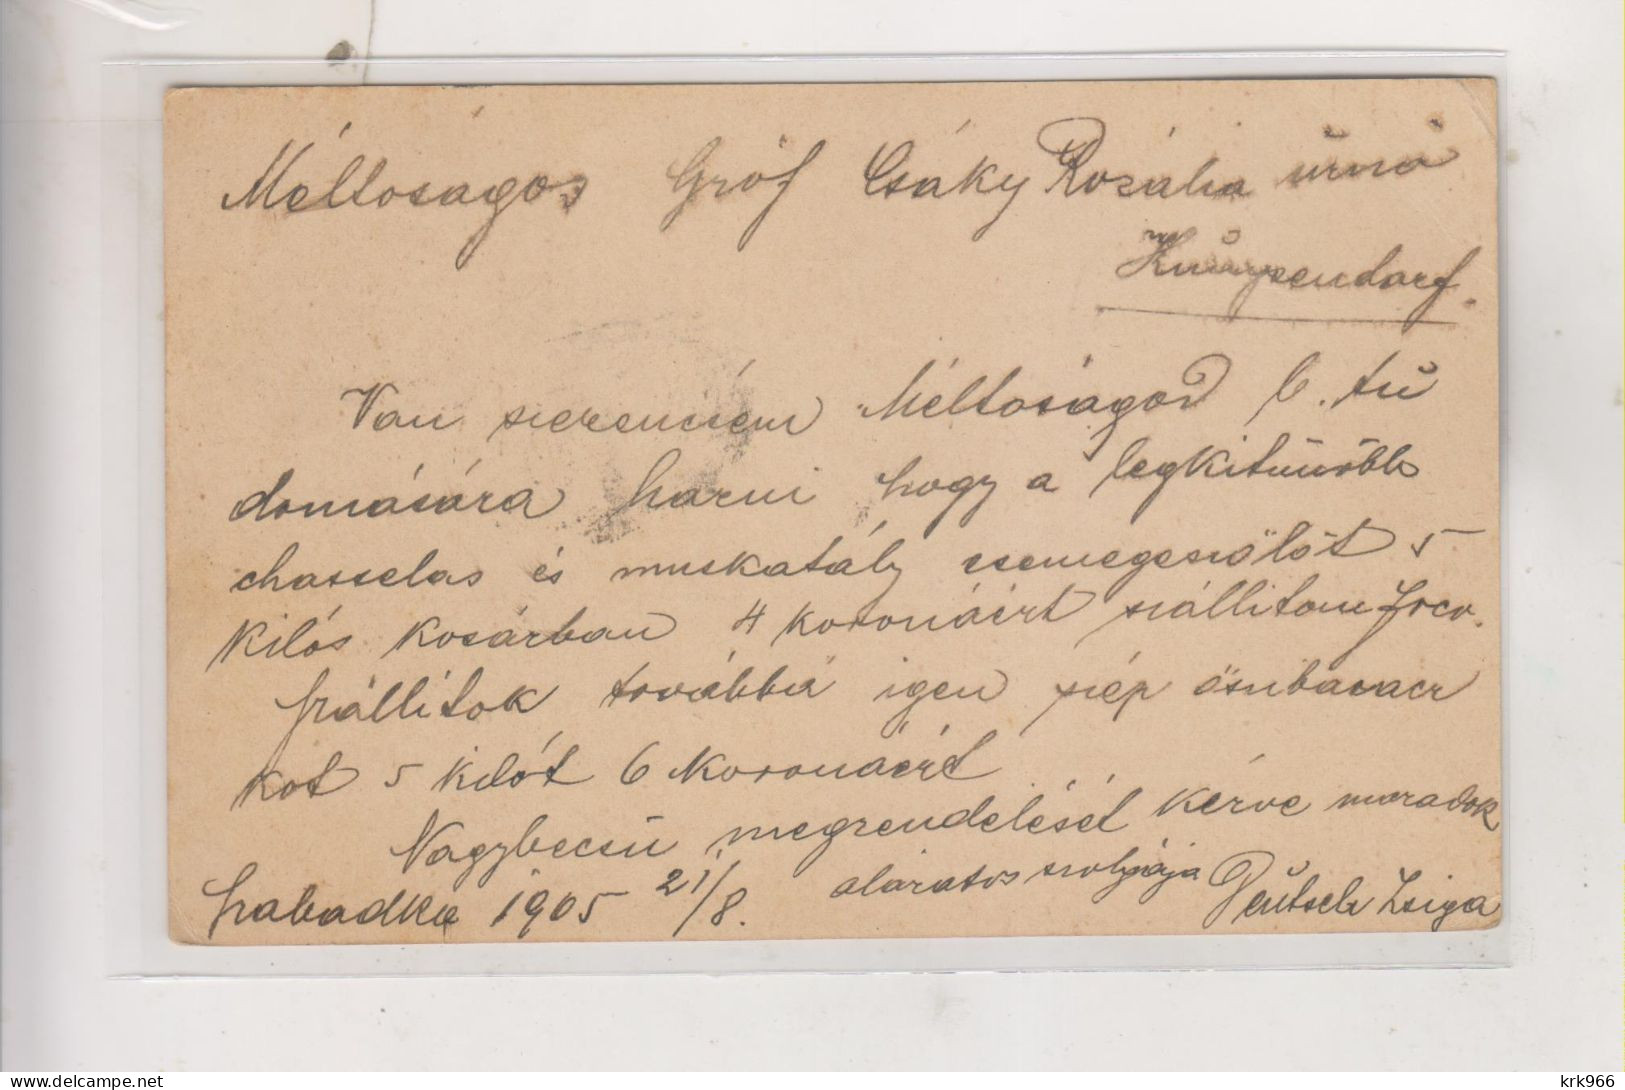 Méltoságos Gróf Csáky Rozália úrnő
Van szerencsém Méltoságod b. tu
domására hozni hogy a legkitünöbb
chasselas és muskatály csemegeszölöt 5
kilós kosárban 4 koronáért szállitom frco.
Szállitok továbbá igen szép öszibaracz
kot 5 kilót 6 koronáért
Nagybecsü megrendelését kérve maradok
alázatos szolgája Deutsch Zsiga
Szabadka 1905 21/8.
krk966